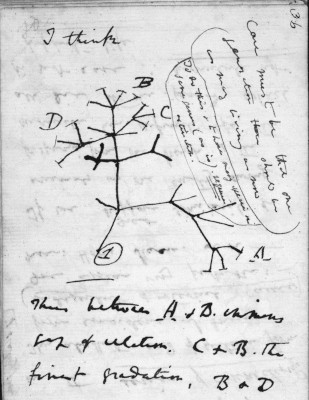 I think
Case must be that one
generation then should be
as many living as now
To do this & to have many species in
same genus (as is) requires
extinction.
B
D
C
A
1
Thus between A & B. immens
gap of relation. C & B. the
finest gradation, B & D
36